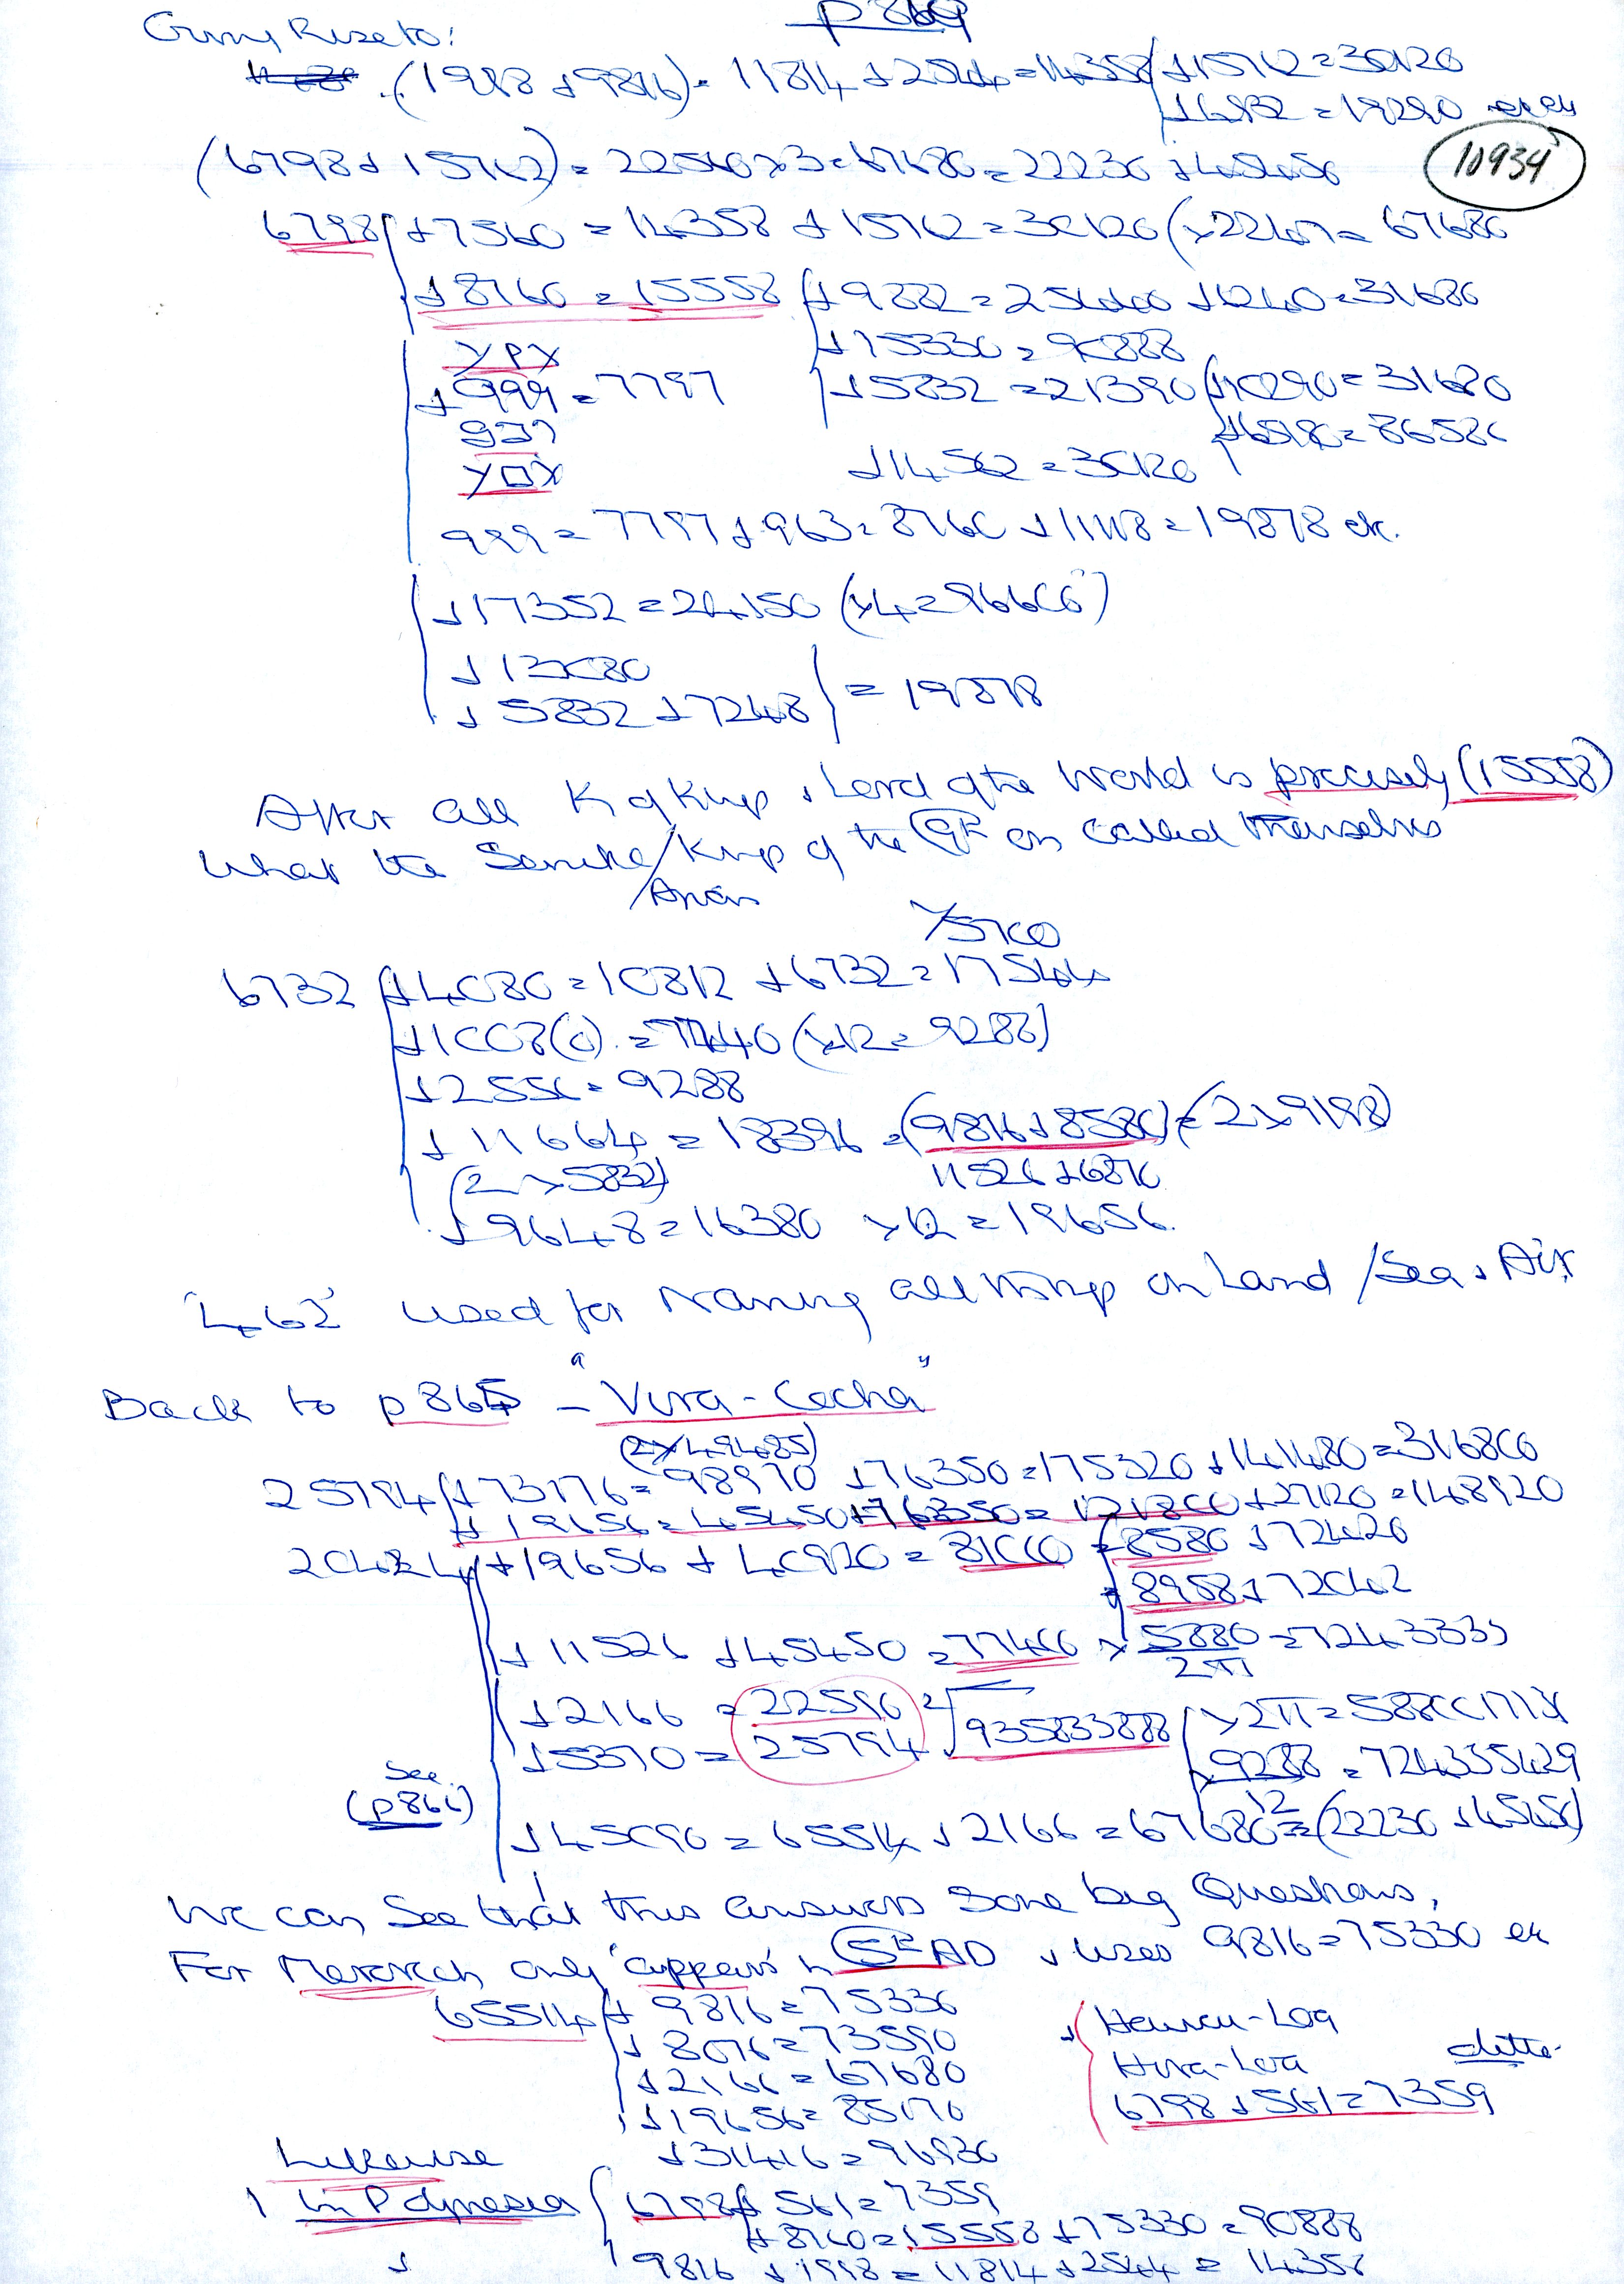 p869
Giving Rise to:
(1998 + 9816) = 11814 + 2544 = 14358 + 15762 = 30120
+ 4932 = 19290
(6798 + 15762) = 22560 x 3 = 67680 = 22230 + 45450
10934
6798 + 7560 = 14358 + 15762 = 30120 (x 2247 = 67680
+ 8760 = 15558 + 9882 = 25440 + 6240 = 31680
+ 75330 = 90888
+ 999 = 7797 + 5832 = 21390 + 10290 = 31680
+ 65196 = 86586
+ 14562 = 30120
999 = 7797 + 963 = 8760 + 11118 = 19878 etc.
+ 17352 = 24150 (x 4 = 96600)
+ 13080
+ 5832 + 7248 = 19878
After all K of Kings & Lord of the World is precisely (15558)
What the Kings of the on called themselves
6732 + 4080 = 10812 + 6732 = 17544
+ 1008(0) = 7740 (x 12 = 9288)
+ 2556 = 9288
+ 11664 = 18396 = (9816 + 8580) = (2 x 9198)
(2 x 5832) 11526 + 6870
+ 9648 = 16380 x 12 = 19656.
'462' used for Naming all things on Land / Sea & Air
Back to p865 - "Vira-Cocha"
(2 x 49485)
25794 + 73176 = 98970 + 76350 = 175320 + 141480 = 316800
+ 19656 = 45450 + 76350 = 121800 + 27120 = 148920
20424 + 19656 + 40920 = 81000 = 8580 + 72420
8958 + 72042
+ 11526 + 45450 = 77400 x 5880 = 7243333
2π
+ 2166 = 22590 2√935833888 x 2π = 588001717
+ 5370 = 25794 x 9288 = 724335429
12
See (p866)
+ 45090 = 65514 + 2166 = 67680 = (22230 + 45450)
We can see that this answers some big Questions,
For only 'appears' in AD & uses 9816 = 75330 etc
65514 + 9816 = 75330
+ 8076 = 73590
+ 2166 = 67680
+ 19656 = 85170
+ 31416 = 96930
Hura-Loa ditto
6798 + 561 = 7359
Likewise
In Polynesia 6798 + 561 = 7359
+ 8760 = 15558 + 75330 = 90888
9816 + 1998 = 11814 + 2544 = 14358